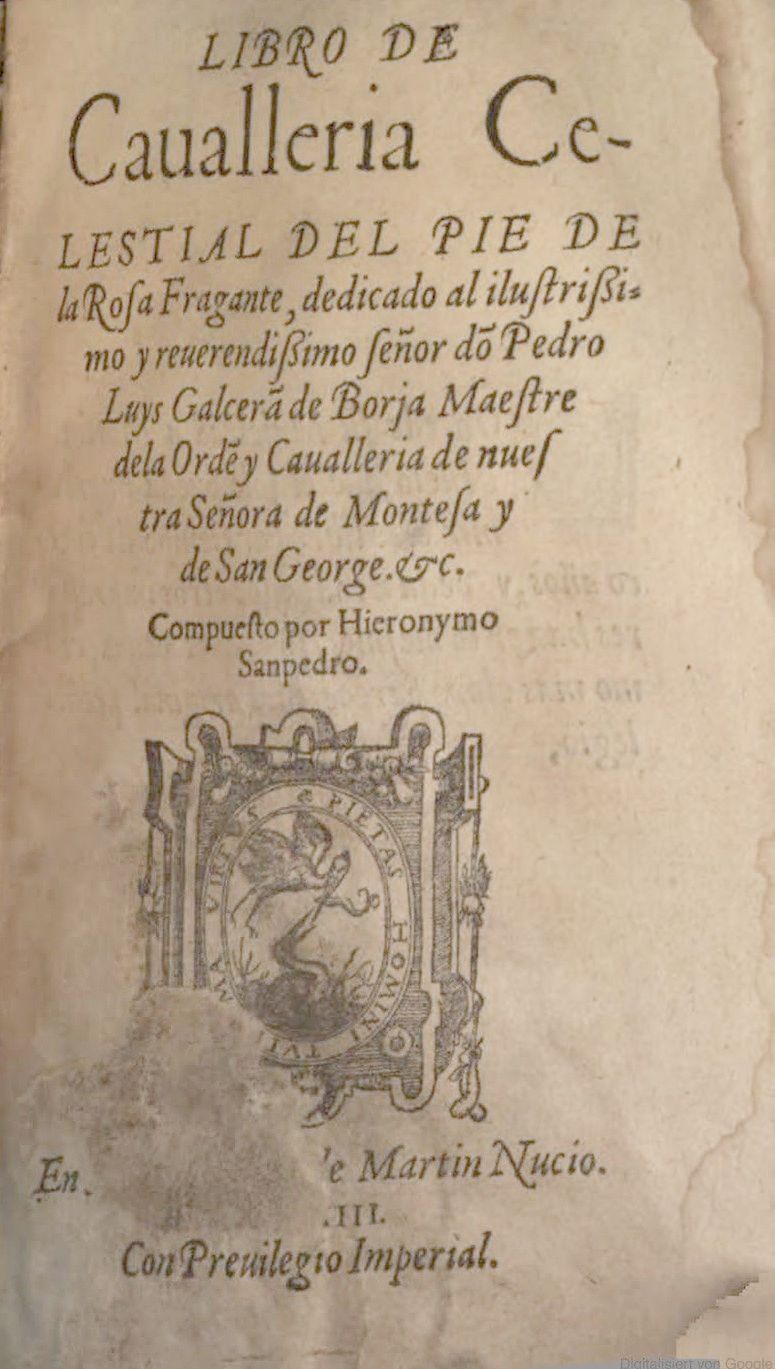 LIBRO DE
Caualleria Ce-
LESTIAL DEL PIE DE
la Roſa Fragante, dedicado al iluſtriſsi-
mo y reuerendiſsimo ſeñor dō Pedro
Luys Galcerā de Borja Maeſtre
dela Ordē y Caualleria de nueſ
tra Señora de Monteſa y
de San George.&c.
Compueſto por Hieronymo
Sanpedro.
PIETAS HOMINI TVTI VIRTVS
En
e Martin Nucio.
.III.
Con Preuilegio Imperial.
Digitalisiert von Google